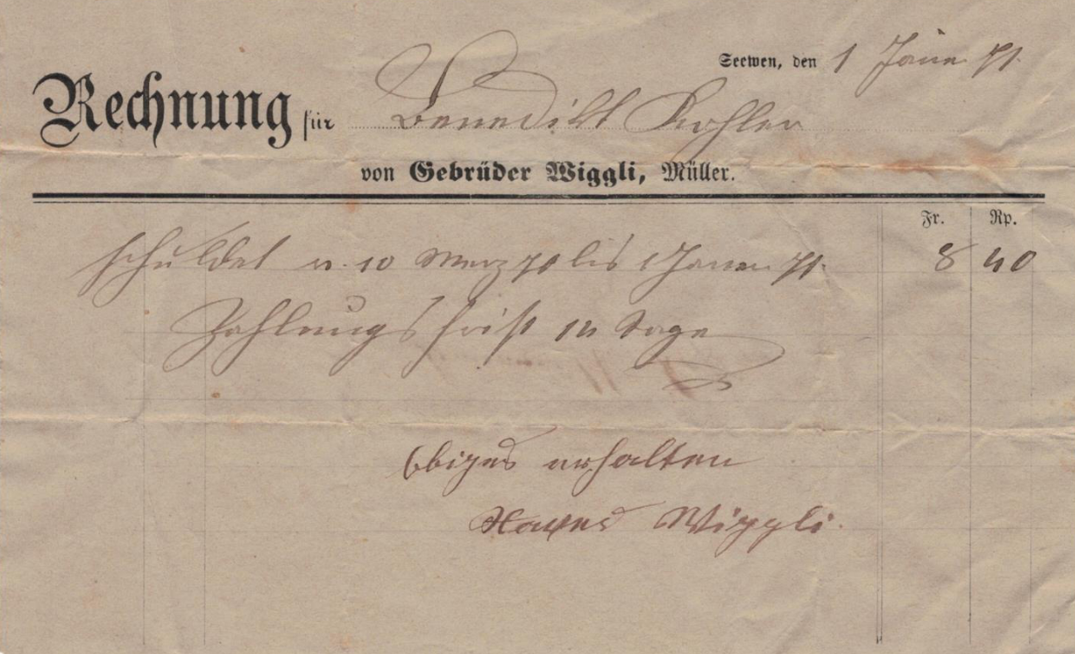 Seewen, den 1 Jänn. 71.
Rechnung für Benedikt Kohler
von Gebrüder Wiggli, Müller.
Fr. Rp.
schuldet v. 10 Merz 70 bis 1 Janner 71. 8 40
Zahlungsfrist 14 Tage
Obiges erhalten
Wiggli.